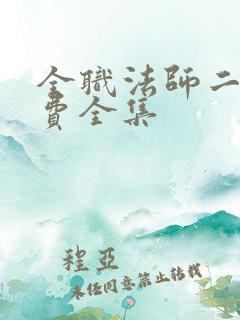 全职法师二
费全集
程亞
未经同意禁止转载